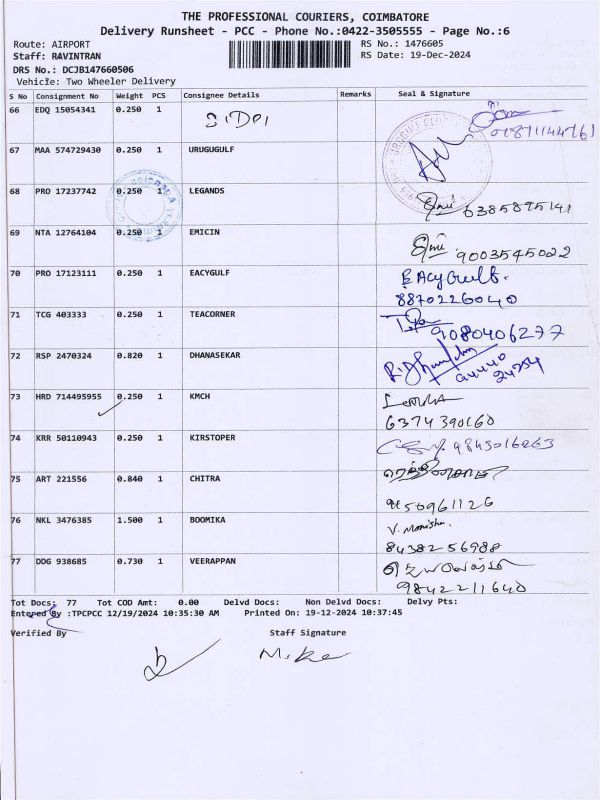 THE PROFESSIONAL COURIERS, COIMBATORE
Delivery Runsheet - PCC - Phone No.:0422-3505555 - Page No.:6
Route: AIRPORT RS No.: 1476605
Staff: RAVINTRAN RS Date: 19-Dec-2024
DRS No.: DCJB147660506
Vehicle: Two Wheeler Delivery
S No Consignment No Weight PCS Consignee Details Remarks Seal & Signature
66 EDQ 15054341 0.250 1
67 MAA 574729430 0.250 1 URUGUGULF
68 PRO 17237742 0.250 1 LEGANDS
6385895141
69 NTA 12764104 0.250 1 EMICIN
9003545022
70 PRO 17123111 0.250 1 EACYGULF EACyGulf.
8870226040
71 TCG 403333 0.250 1 TEACORNER
9080406277
72 RSP 2470324 0.820 1 DHANASEKAR
94440
24254
73 HRD 714495955 0.250 1 KMCH
6374390160
74 KRR 50110943 0.250 1 KIRSTOPER 9843016263
75 ART 221556 0.840 1 CHITRA
9150961126
76 NKL 3476385 1.500 1 BOOMIKA V. Monisha.
8438256988
77 DDG 938685 0.730 1 VEERAPPAN
9842211640
Tot Docs: 77 Tot COD Amt: 0.00 Delvd Docs: Non Delvd Docs: Delvy Pts:
Entered By :TPCPCC 12/19/2024 10:35:30 AM Printed On: 19-12-2024 10:37:45
Verified By Staff Signature